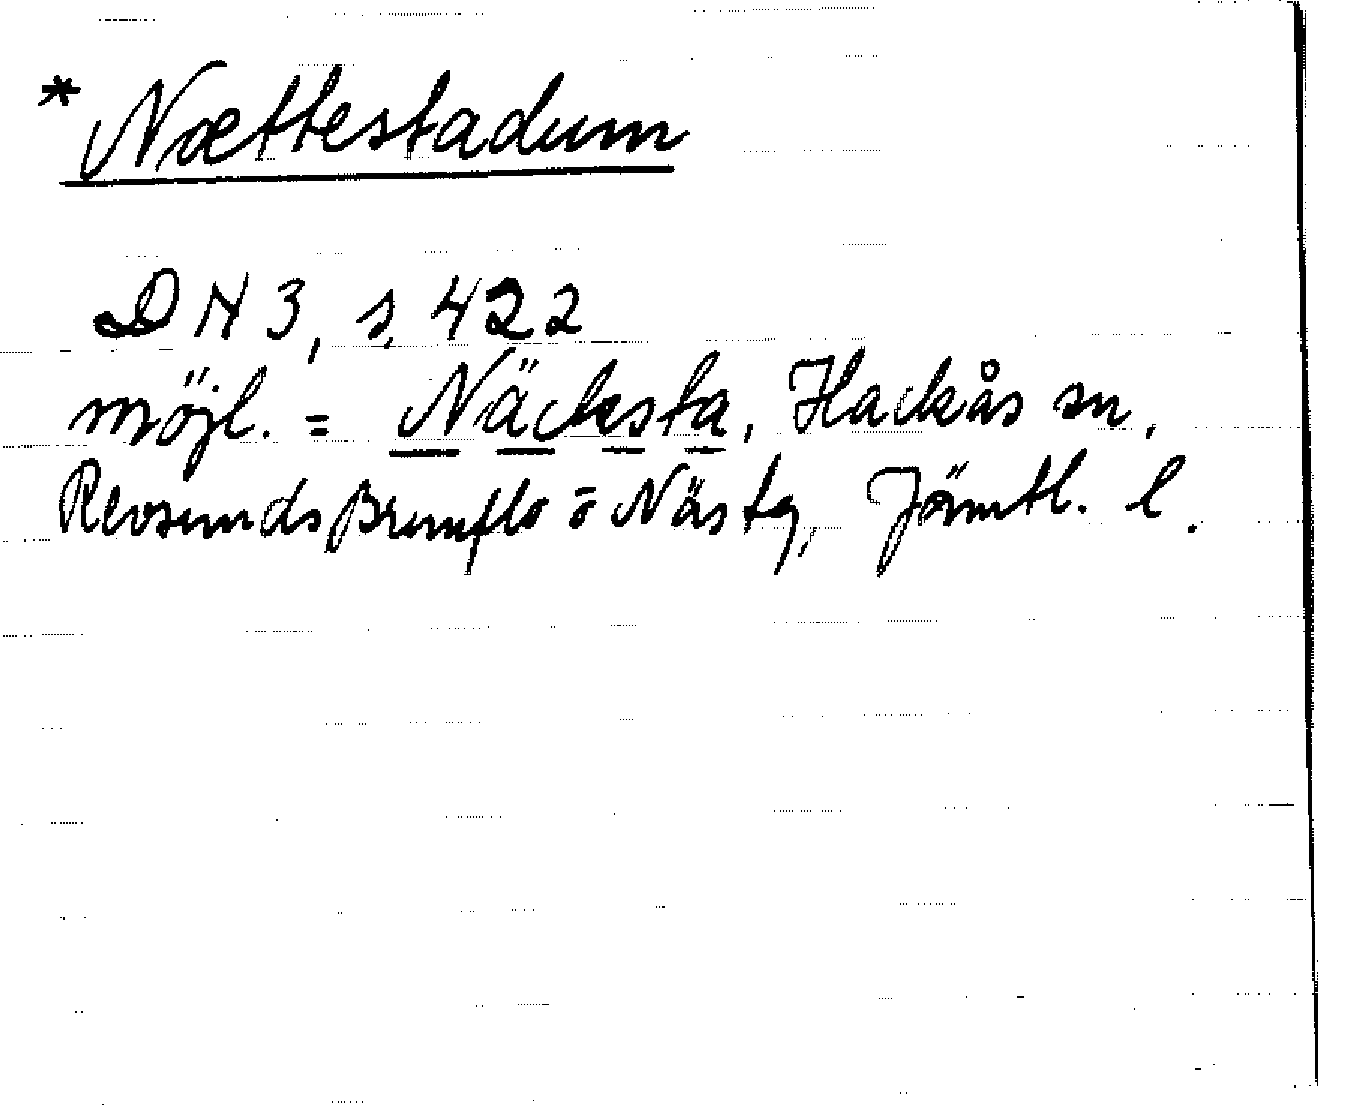 * Nættestadum
DN 3, s. 422
möjl. = Näcksta, Hackås sn,
Revsunds Brunflo o Näs tg, Jämtl. l.